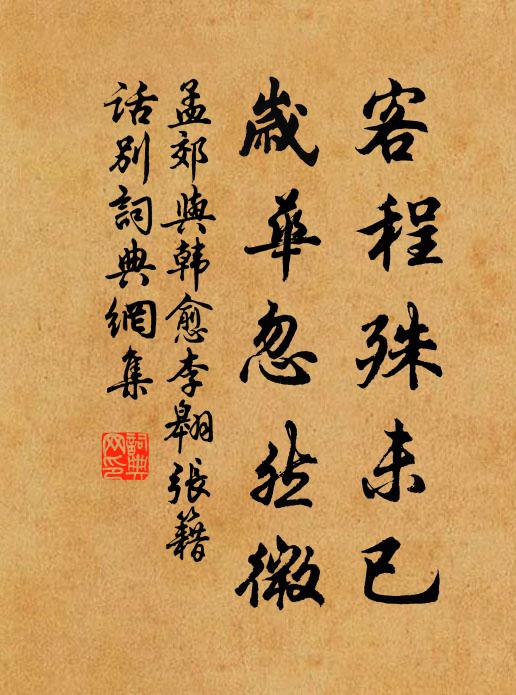 客程殊未已
歲華忽然微
孟郊與韩愈李翱張籍
话别詞典網集
詞典网印